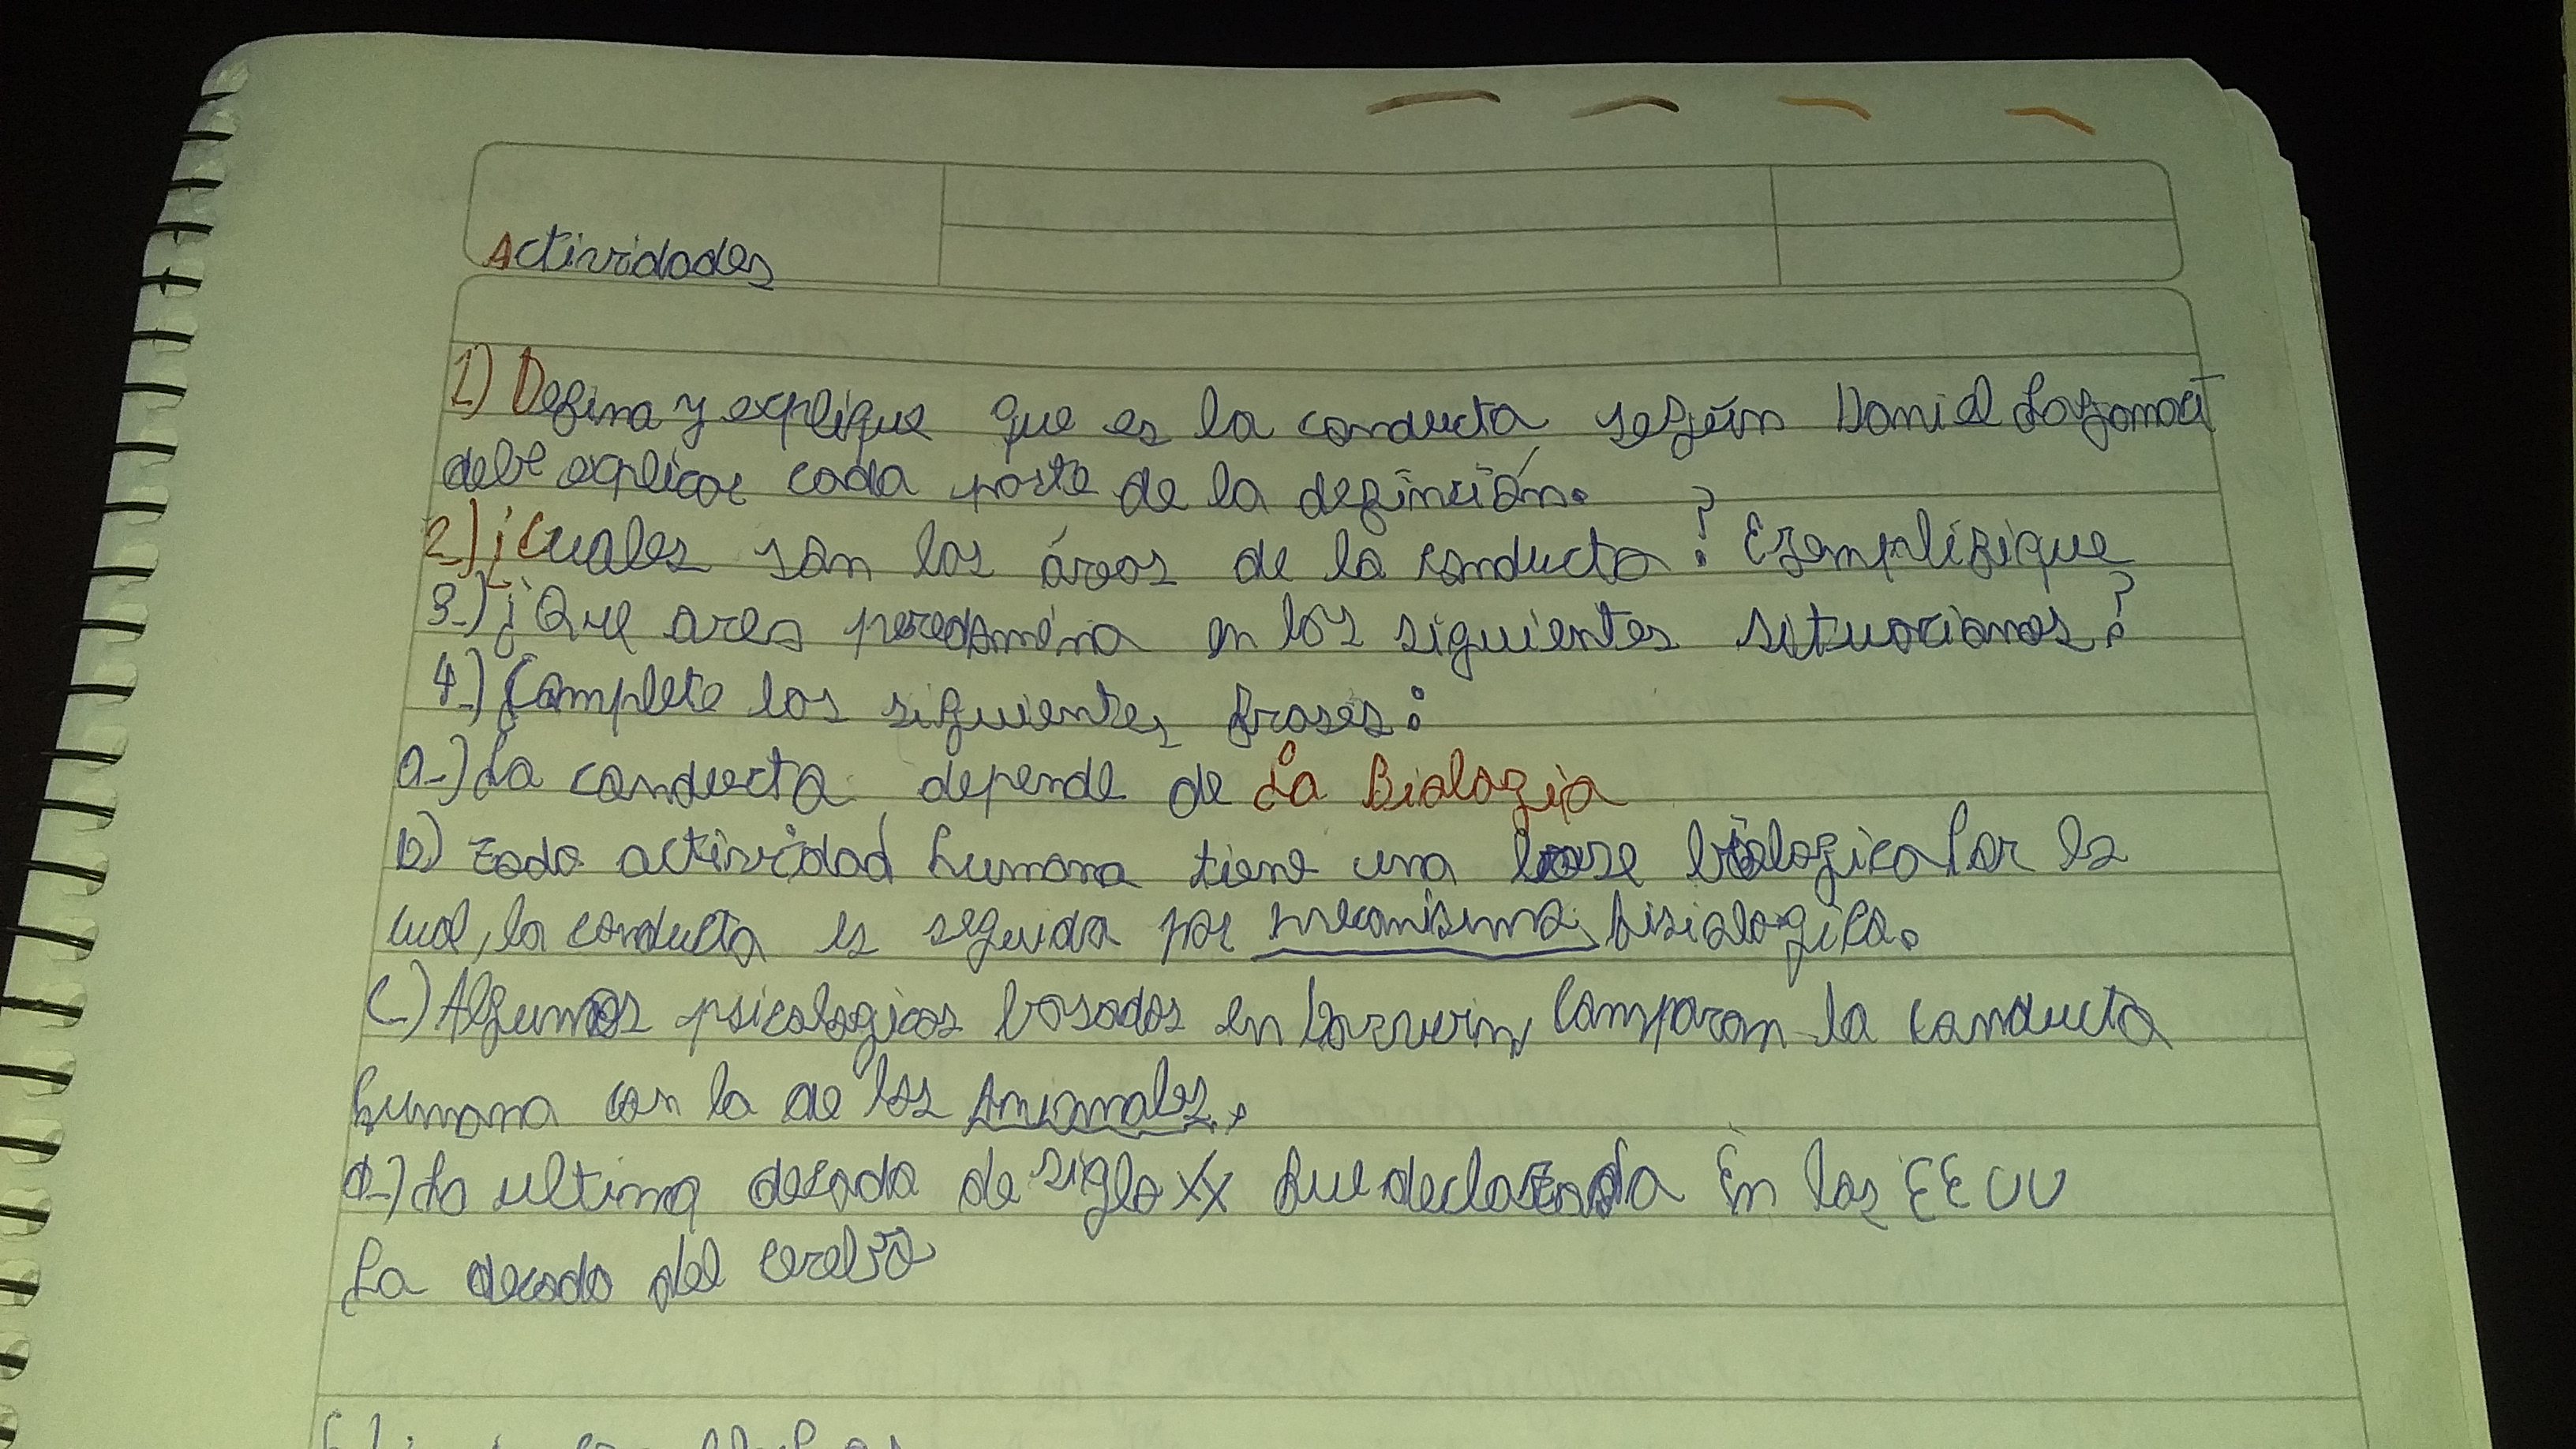 Actividades
1) Defina y explique que es la conducta según Daniel Lagomart
debe explicar cada parte de la definición.
2) ¿Cuales son las áreas de la conducta? Ezemplifique
3-) ¿Que area peredomina en los siguientes situaciones?
4-) Complete las siguientes frases:
a-) La conducta depende de La Biologia
b) Toda actividad humana tiene una base biologica Por la
cual, la conducta es seguida por mecanismo, fisiologica.
C-) Algunos psicologicos basados en Darwin, Comparan la conducta
humana con la de los Animales.
d-) La ultima decada de siglo XX fue declarada En los EEUU
La decada del cerebro